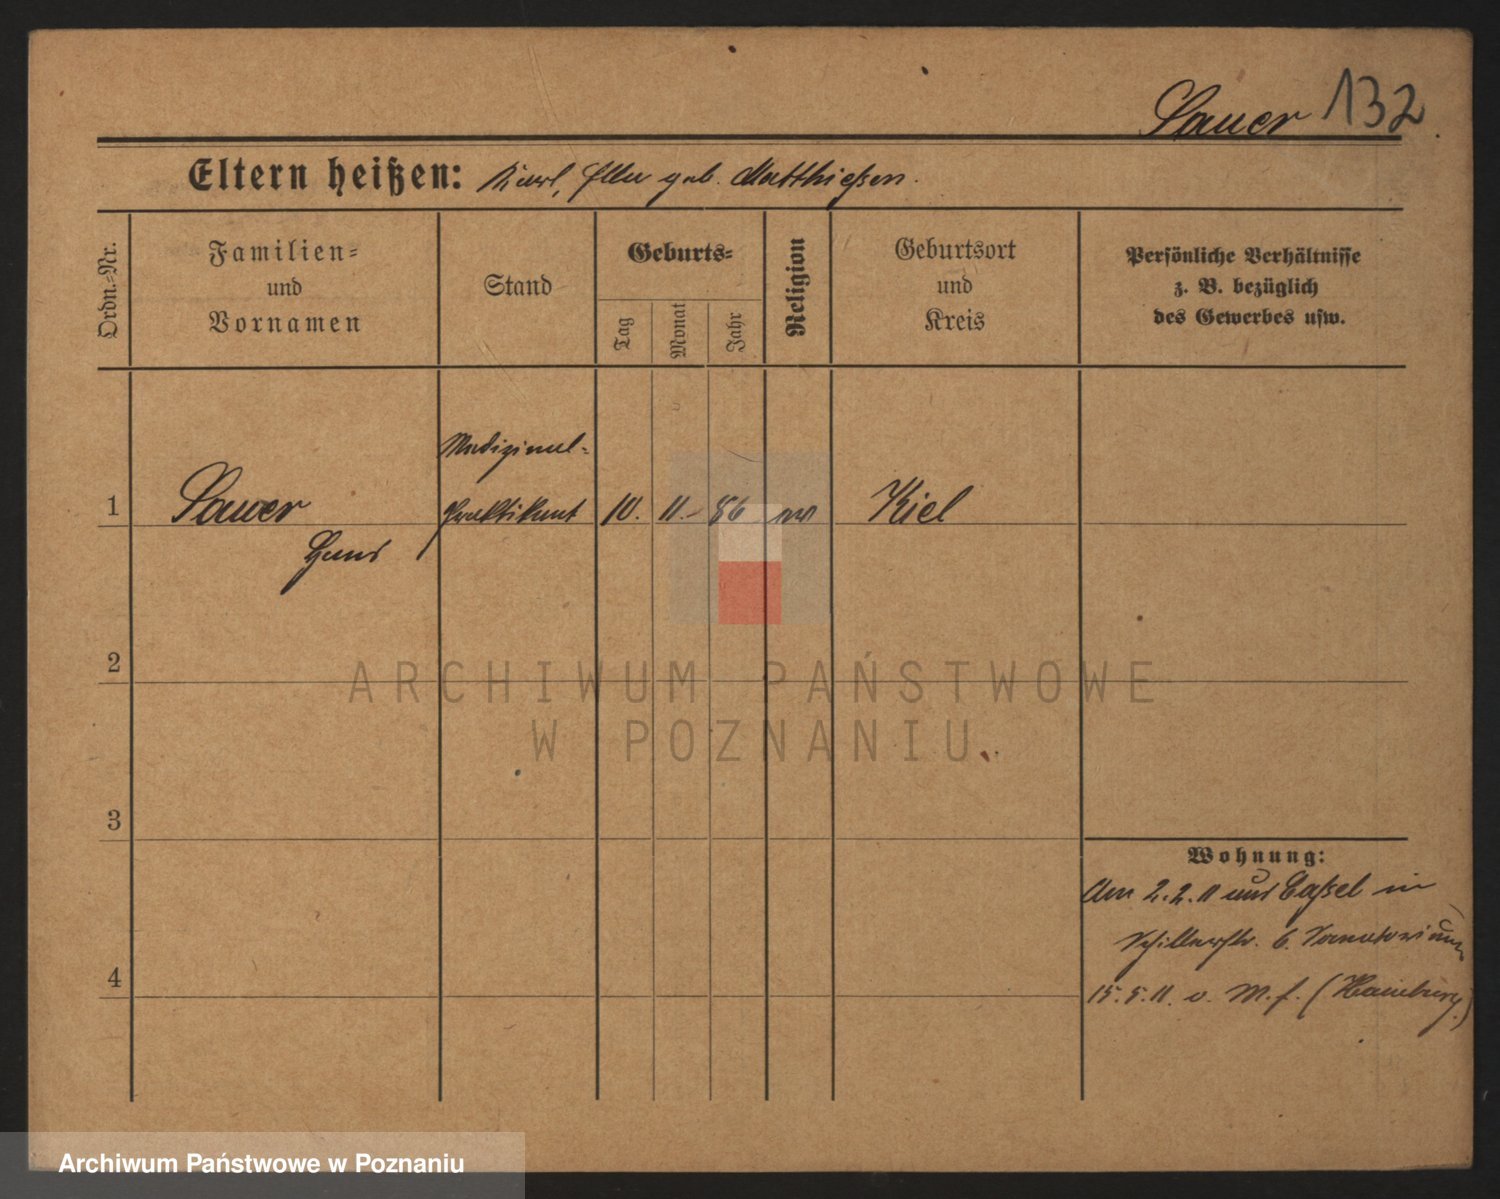 Sauer 132
Eltern heißen: Karl, Ella geb. Matthießen.
Ordn.-Nr.
Familien-
und
Vornamen
Stand
Geburts-
Tag
Monat
Jahr
Religion
Geburtsort
und
Kreis
Persönliche Verhältnisse
z. B. bezüglich
des Gewerbes usw.
Medizinal-
1 Sauer Praktikant 10. 11. 86 Kiel
Hans
2
3
4
Wohnung:
Am 2.2.11 aus Caßel in
Schillerstr. 6. Sanatorium
15.5.11. v. M. f. (Hamburg.)
ARCHIWUM PAŃSTWOWE
W POZNANIU
Archiwum Państwowe w Poznaniu